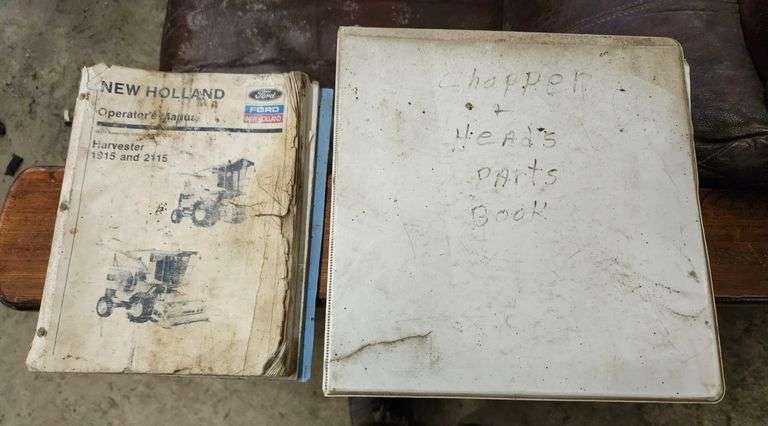 NEW HOLLAND
Ford
Operator's Manual
FORD
NEW HOLLAND
Harvester
1915 and 2115
Chopper
+
Heads
Parts
Book